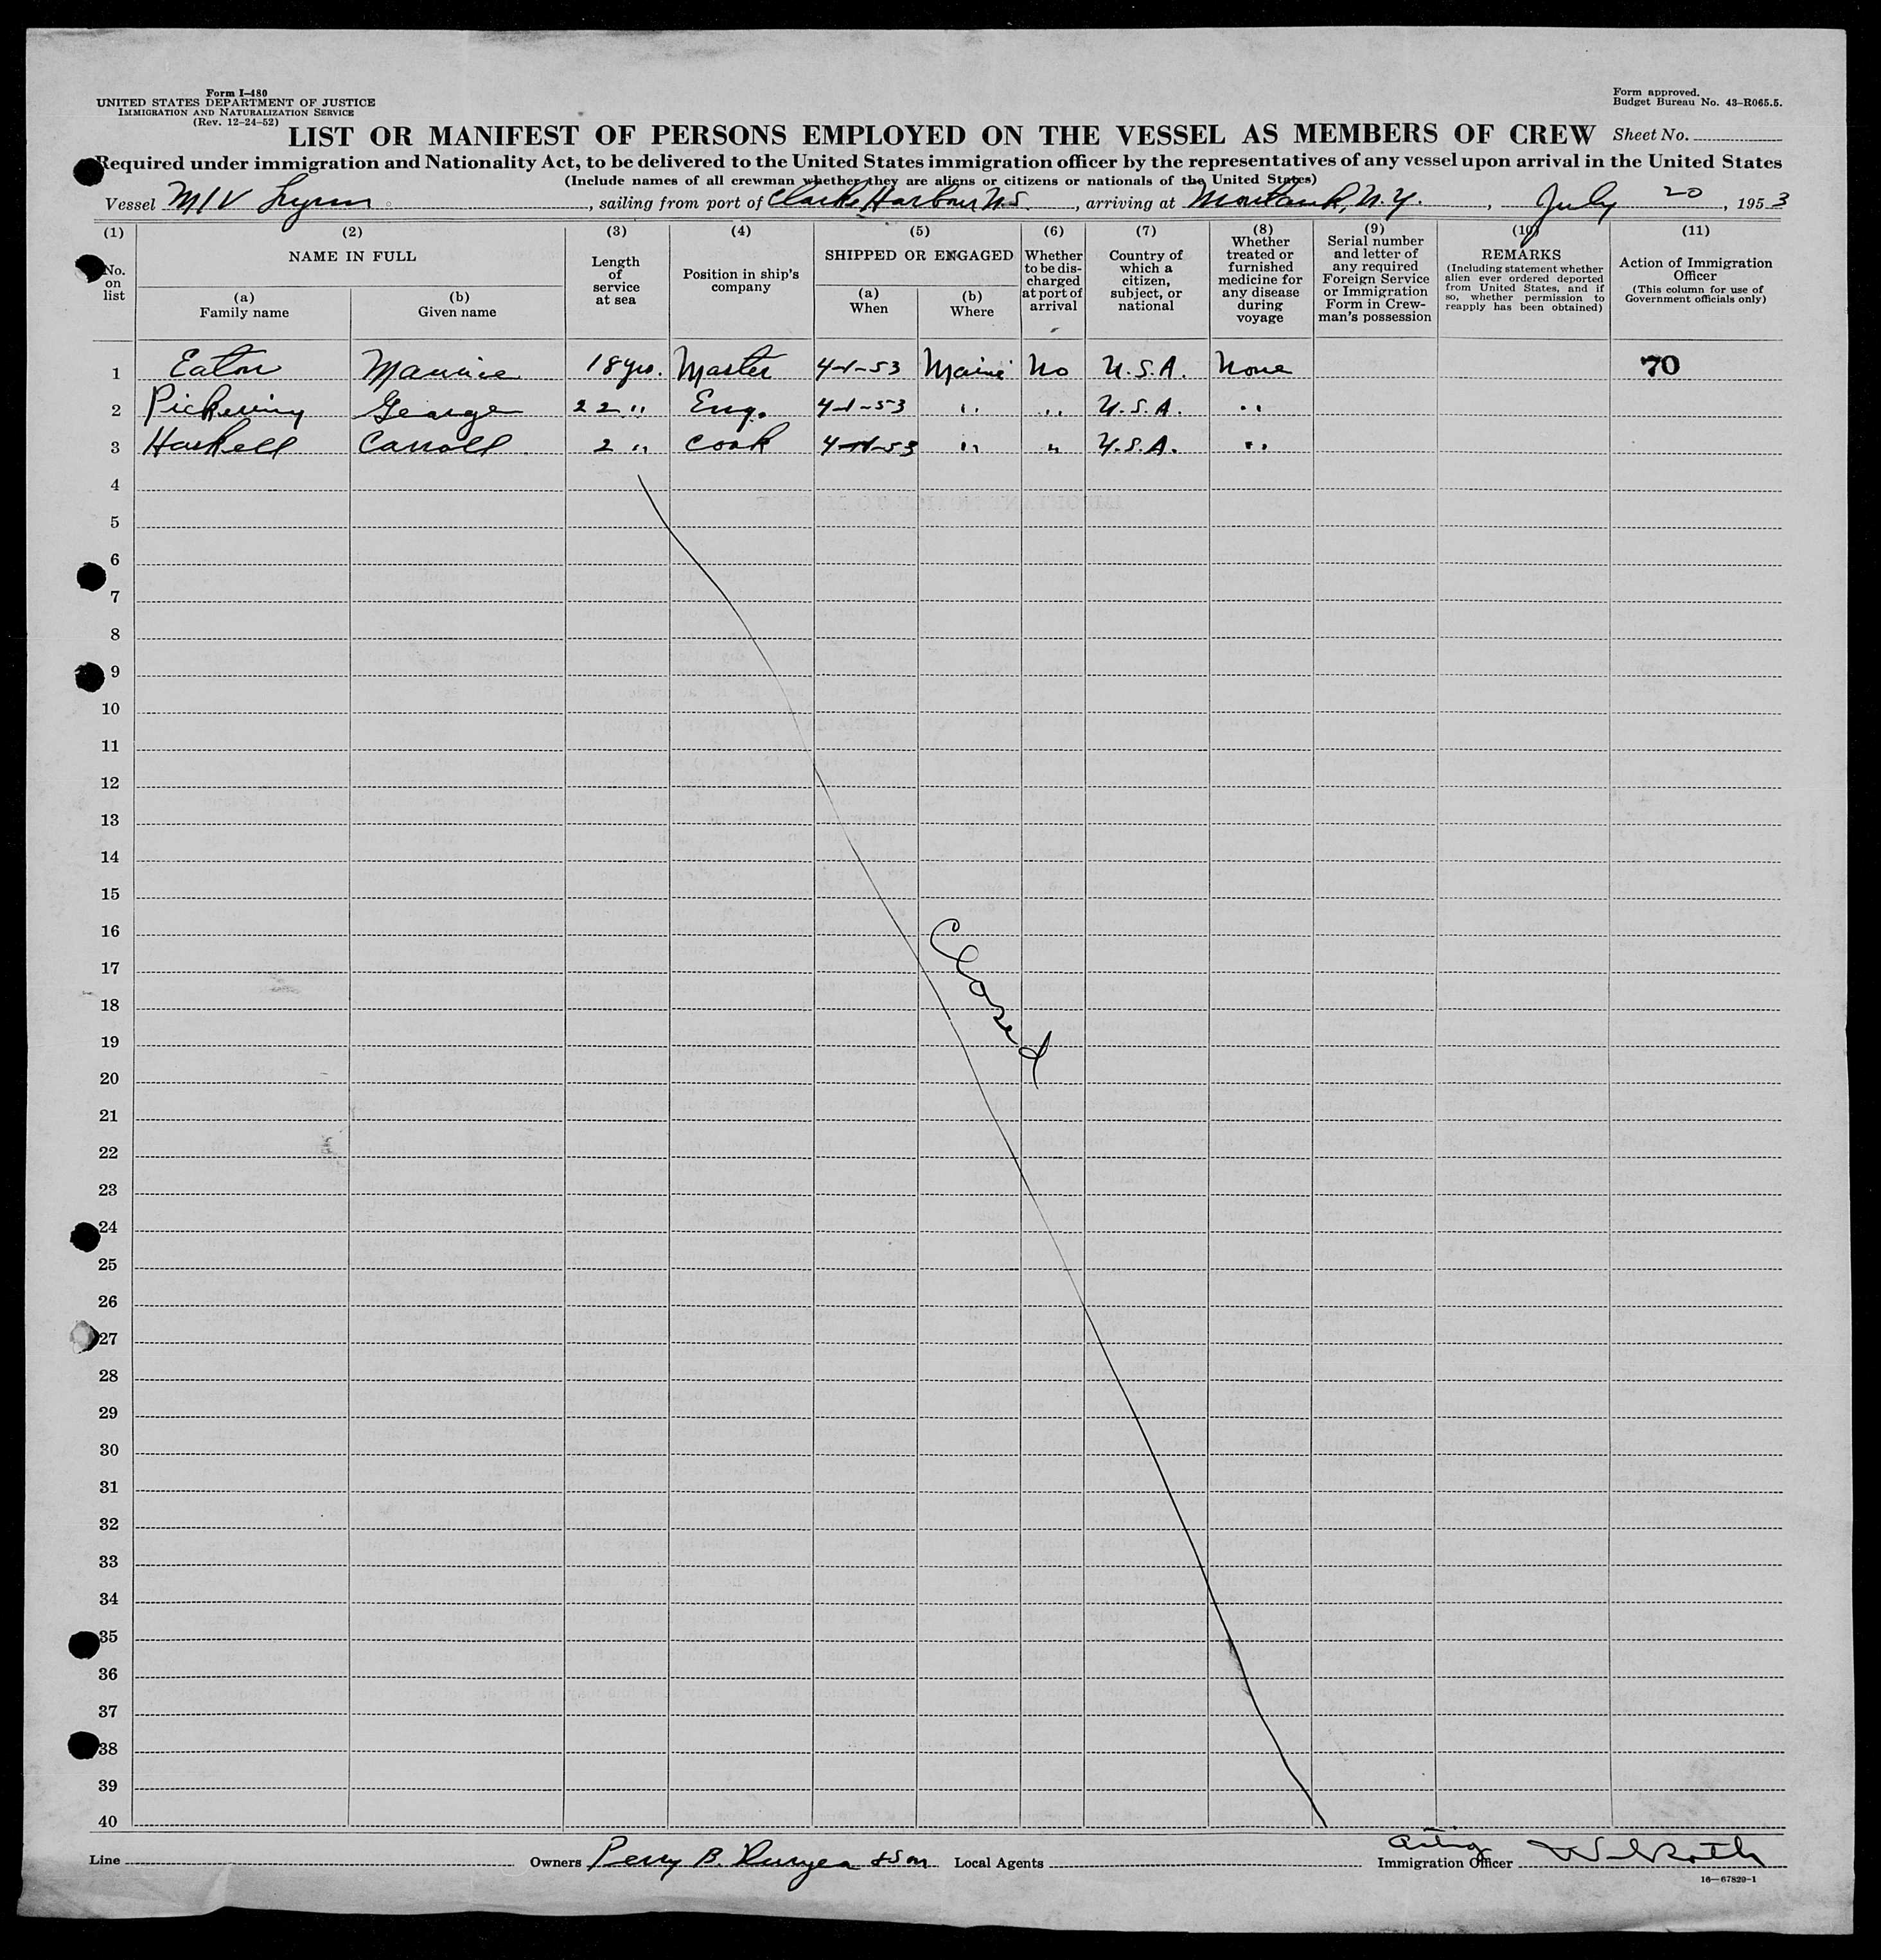 Form I-480
UNITED STATES DEPARTMENT OF JUSTICE
IMMIGRATION AND NATURALIZATION SERVICE
(Rev. 12-24-52)
Form approved.
Budget Bureau No. 43-R065.5.
LIST OR MANIFEST OF PERSONS EMPLOYED ON THE VESSEL AS MEMBERS OF CREW Sheet No.
Required under immigration and Nationality Act, to be delivered to the United States immigration officer by the representatives of any vessel upon arrival in the United States
(Include names of all crewman whether they are aliens or citizens or nationals of the United States)
Vessel M/V , sailing from port of Clarks Harbour N.S. , arriving at Montauk, N.Y. , July 20 , 1953
(1) No. on list
(2) NAME IN FULL
(a) Family name
(b) Given name
(3) Length of service at sea
(4) Position in ship's company
(5) SHIPPED OR ENGAGED
(a) When
(b) Where
(6) Whether to be discharged at port of arrival
(7) Country of which a citizen, subject, or national
(8) Whether treated or furnished medicine for any disease during voyage
(9) Serial number and letter of any required Foreign Service or Immigration Form in Crewman's possession
(10) REMARKS (Including statement whether alien ever ordered deported from United States, and if so, whether permission to reapply has been obtained)
(11) Action of Immigration Officer (This column for use of Government officials only)
1 Eaton Maurice 18 yrs. Master 4-1-53 Maine No U.S.A. None 70
2 Pickering George 22 " Eng. 4-1-53 " " U.S.A. "
3 Haskell Carroll 2 " Cook 4-1-53 " " U.S.A. "
4
5
6
7
8
9
10
11
12
13
14
15
16
17
18
19
20
21
22
23
24
25
26
27
28
29
30
31
32
33
34
35
36
37
38
39
40
Closed
Line Owners Perry B. Duryea & Son Local Agents Immigration Officer
16—67829-1